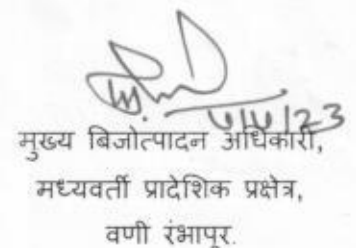 मुख्य बिजोत्पादन अधिकारी,
मध्यवर्ती प्रादेशिक प्रक्षेत्र,
वणी रंभापुर.